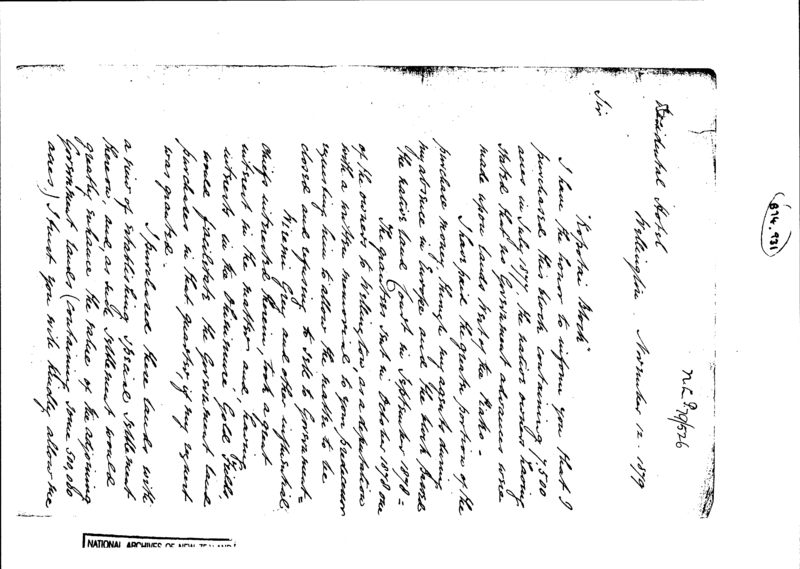 NLP 79/526
Occidental Hotel
Wellington. November 12. 1879
Sir
"Rapatu Block"
I have the honor to inform you that I
purchased this block containing 1,500
acres in July 1877. The native owners having
stated that no Government advances were
made upon lands West of the
I have paid the greater portion of the
purchase money through my agents during
my absence in Europe and the block passed
the native land Court in September 1878 =
The quartess sent in October 1878 one
of the owners to Wellington as a deputation
with a written memorial to your predecessor
requesting him to allow the matter to be
closed and refusing to sell to Government =
Wiremu Grey and other influential
chiefs interested therein, took a great
interest in the matter and having
interests in the Ohinemuri Gold Field,
would facilitate the Government land
purchases in that quarter, if my request
was granted.
I purchased these lands with
a view of establishing special settlement
thereon, and, as such settlement would
greatly enhance the value of the adjoining
Government lands (containing some 500,000
acres.) I trust you will kindly allow me
B 74. 931
NATIONAL ARCHIVES OF NEW ZEALAND